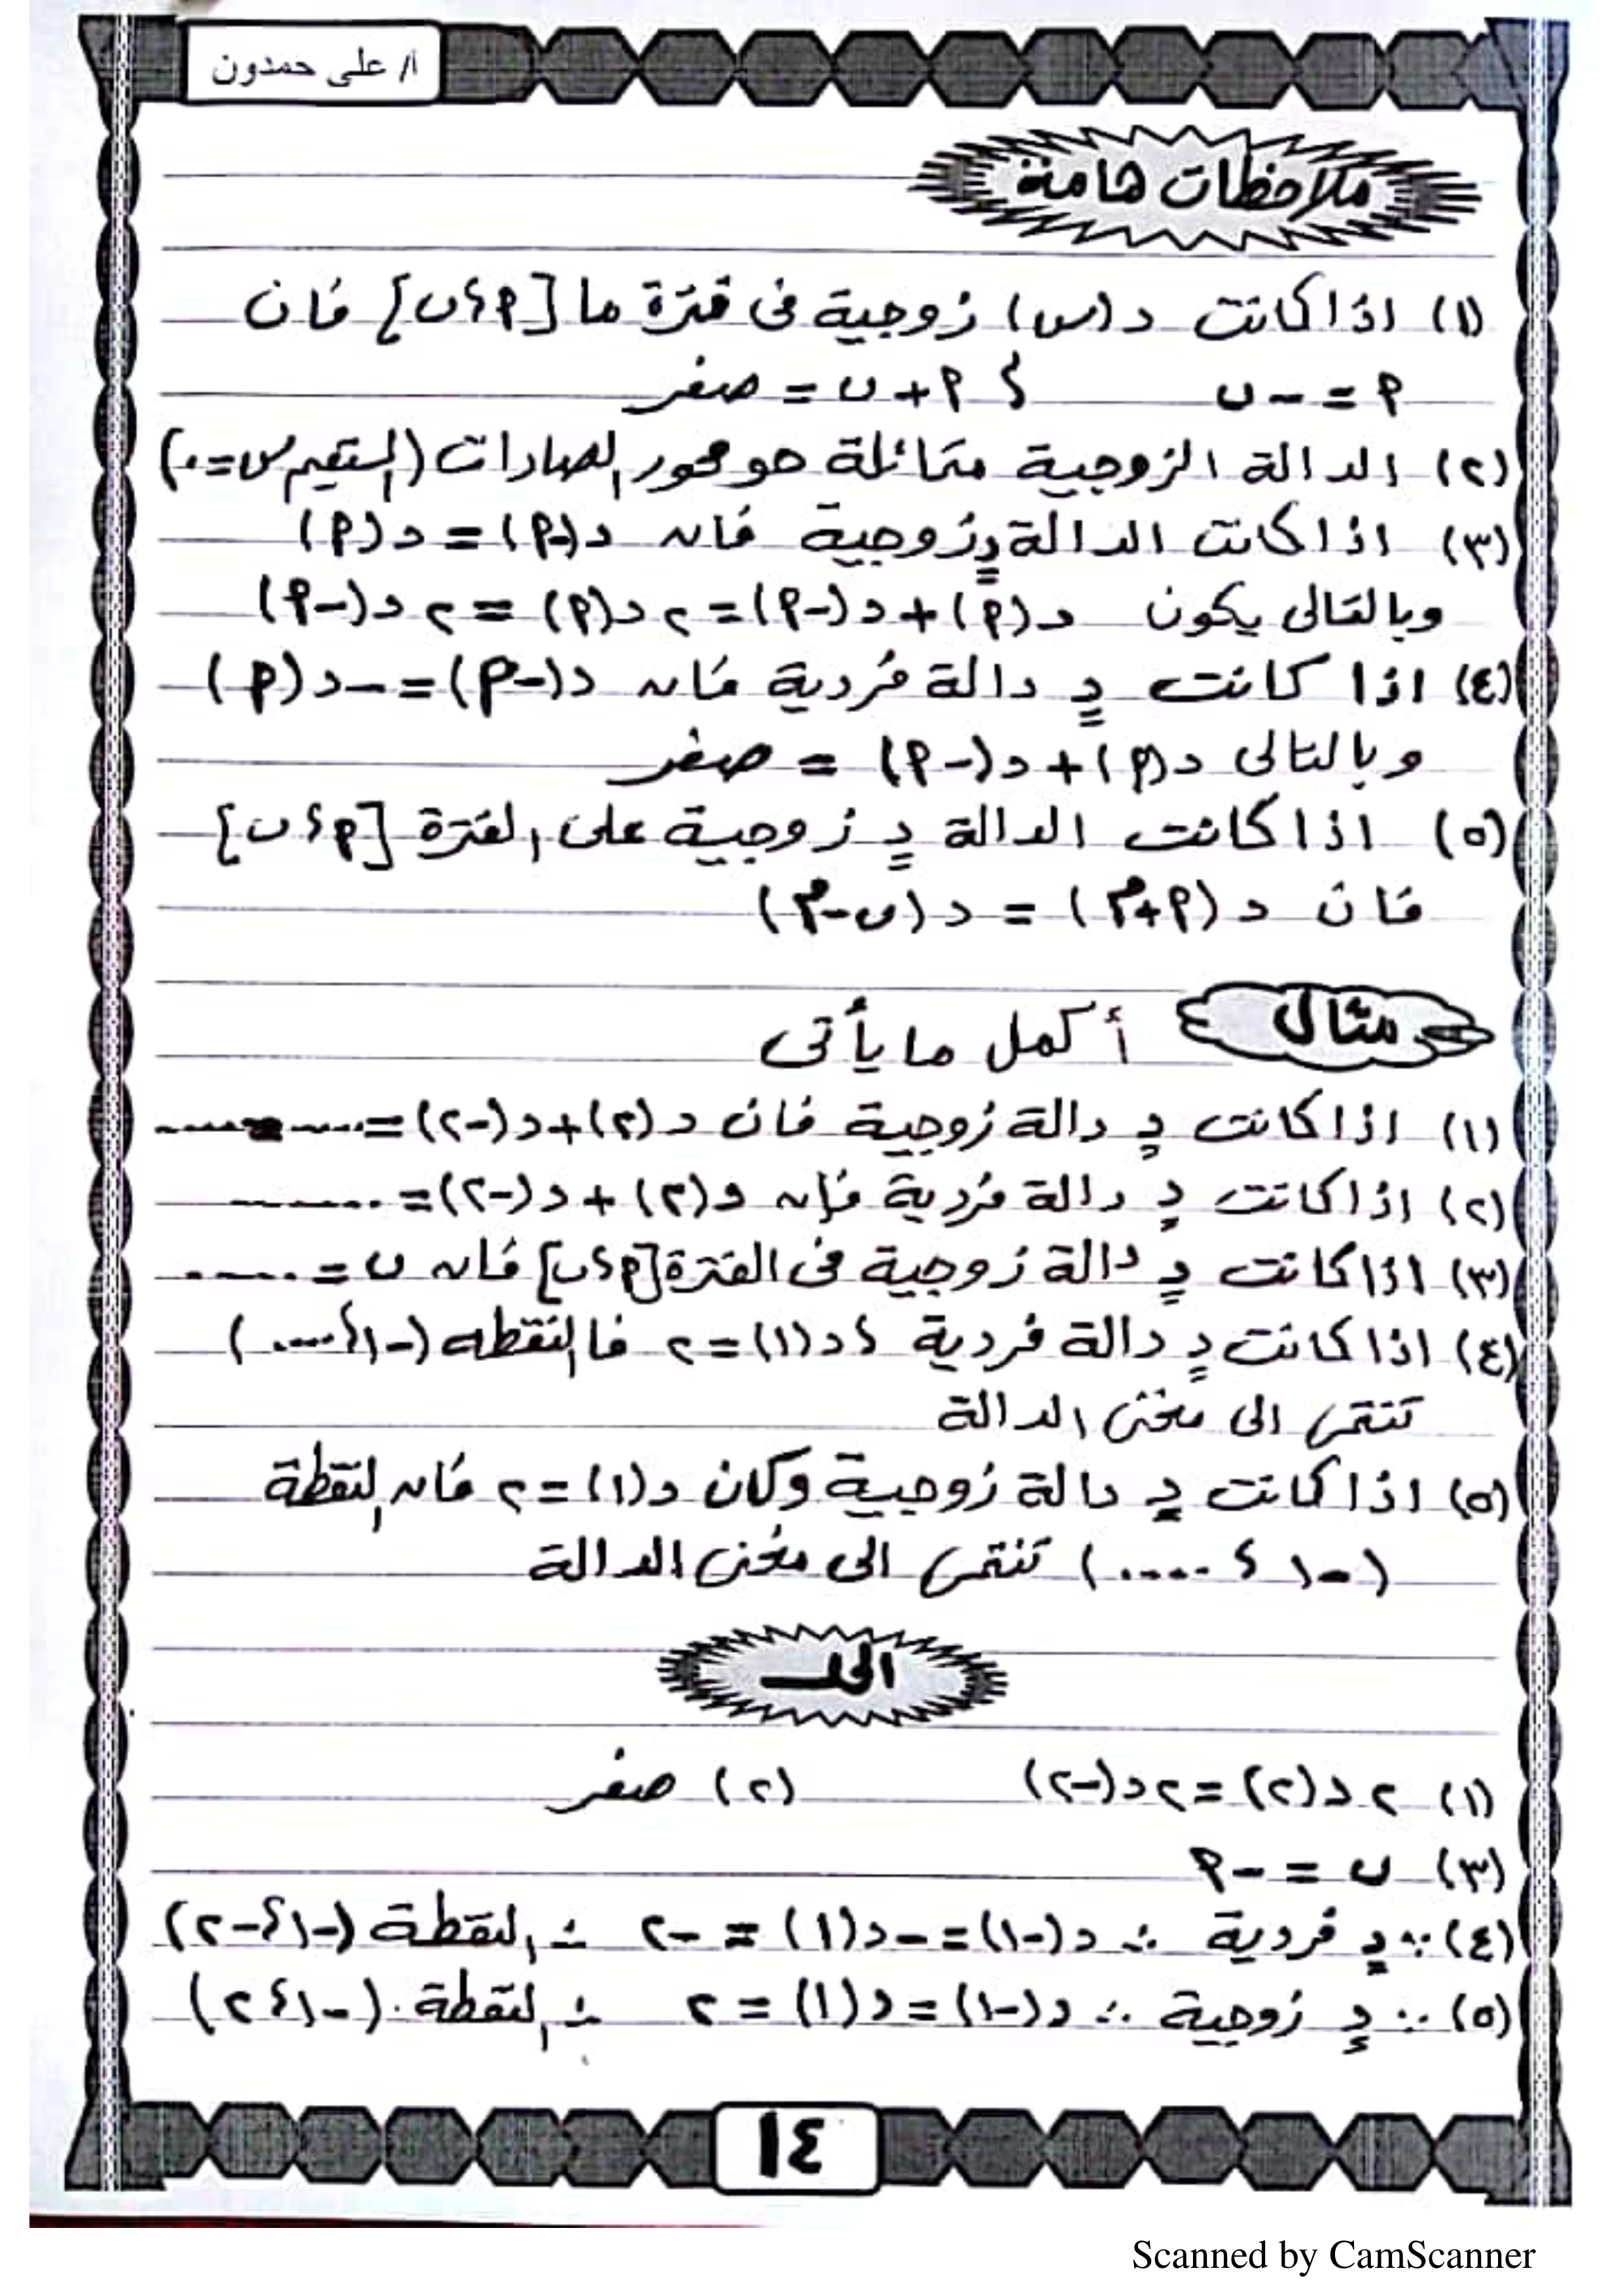 أ/ على حمدون
ملاحظات هامة
(١) اذا كانت د(س) زوجية فى فترة ما [م؛ں] فان
م = -ں ؛ م + ں = صفر
(٢) الدالة الزوجية متماثلة حو محور الصادات (المستقيم س=٠)
(٣) اذا كانت الدالة د زوجية فان د(-م) = د(م)
وبالتالى يكون د(م) + د(-م) = ٢ د(م) = ٢ د(-م)
(٤) اذا كانت د دالة فردية فان د(-م) = -د(م)
وبالتالى د(م) + د(-م) = صفر
(٥) اذا كانت الدالة د زوجية على الفترة [م؛ں]
فان د(م+٣) = د(ں-٣)
مثال أكمل ما يأتى
(١) اذا كانت د دالة زوجية فان د(٢)+د(-٢)=........
(٢) اذا كانت د دالة فردية فإن د(٢) + د(-٢)=........
(٣) اذا كانت د دالة زوجية فى الفترة [م؛ں] فان ں =.....
(٤) اذا كانت د دالة فردية ؛ د(١)=٢ فالنقطه (-١؛....)
تنتمى الى منحنى الدالة
(٥) اذا كانت د دالة زوجية وكان د(١)=٢ فان النقطة
(-١ ؛ ....) تنتمى الى منحنى الدالة
الحل
(١) ٢ د(٢) = ٢ د(-٢) (٢) صفر
(٣) ں = -م
(٤) ∵ د فردية ∴ د(-١) = -د(١) = -٢ ∴ النقطة (-١؛-٢)
(٥) ∵ د زوجية ∴ د(-١) = د(١) = ٢ ∴ النقطة (-١؛٢)
١٤
Scanned by CamScanner